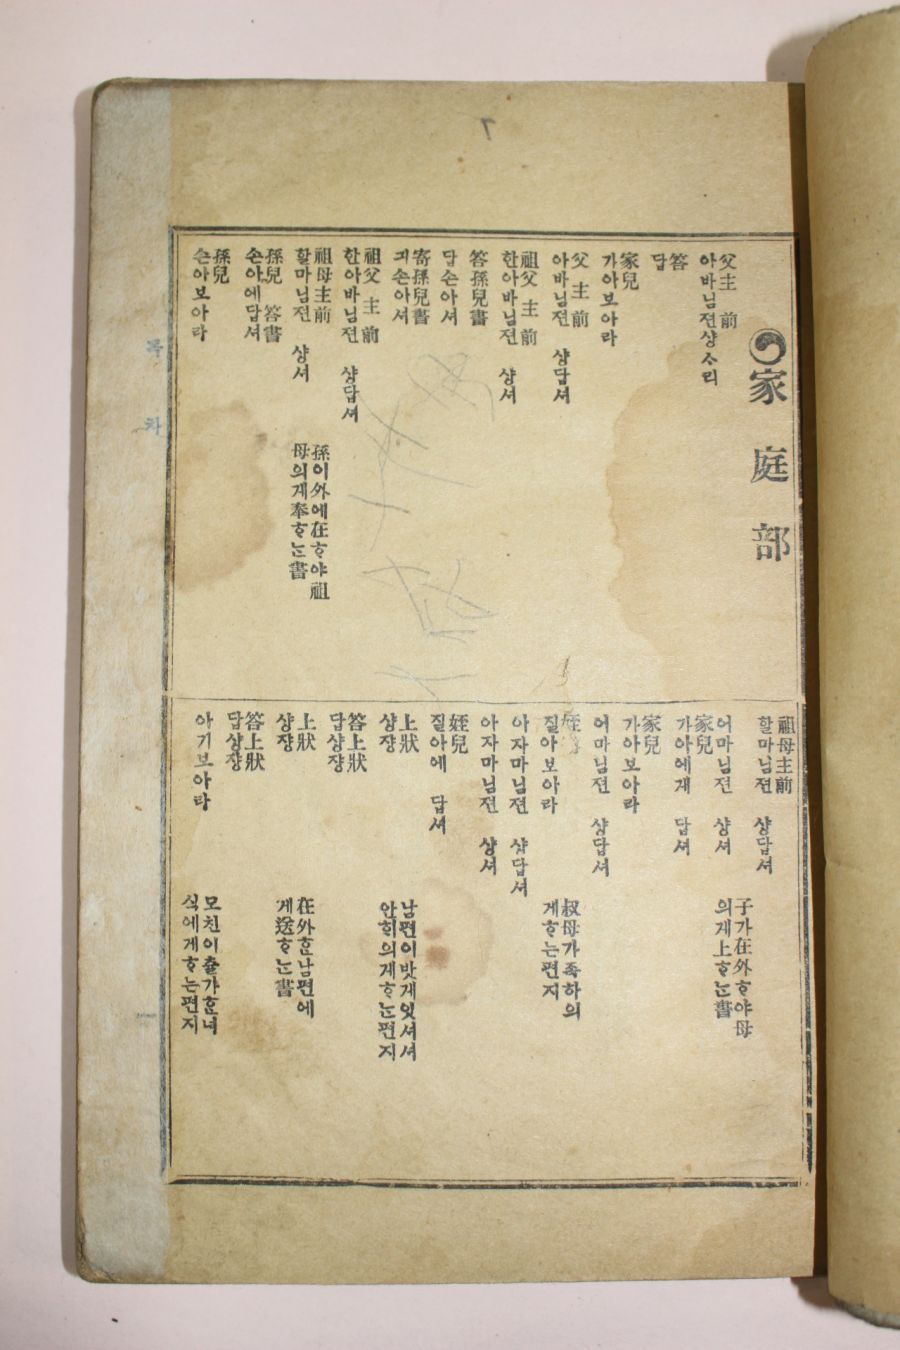 家庭部
父主前
아바님젼샹ᄉᆞ리
答
답
家兒
가아보아라
父主前
아바님젼 샹답셔
祖父主前
한아바님젼 샹셔
答孫兒書
답손아셔
寄孫兒書
긔손아셔
祖父主前
한아바님젼 샹답셔
祖母主前
할마님젼 샹셔
孫이外에在ᄒᆞ야祖
母의게奉ᄒᆞᄂᆞᆫ書
孫兒 答書
손아에답셔
孫兒
손아보아라
祖母主前
할마님젼 샹답셔
子가在外ᄒᆞ야母
의게上ᄒᆞᄂᆞᆫ書
어마님젼 샹셔
家兒
가아에게 답셔
家兒
가아보아라
어마님젼 샹답셔
叔母가족하의
게ᄒᆞᄂᆞᆫ편지
姪
질아보아라
아자마님젼 샹답셔
아자마님젼 샹셔
姪兒
질아에 답셔
上狀
샹쟝
남편이밧게잇셔셔
안ᄒᆡ의게ᄒᆞᄂᆞᆫ편지
答上狀
답샹쟝
上狀
샹쟝
在外ᄒᆞᆫ남편에
게送ᄒᆞᄂᆞᆫ書
答上狀
답샹쟝
아기보아라
모친이츌가ᄒᆞᆫ녀
식에게ᄒᆞᄂᆞᆫ편지
목차
一